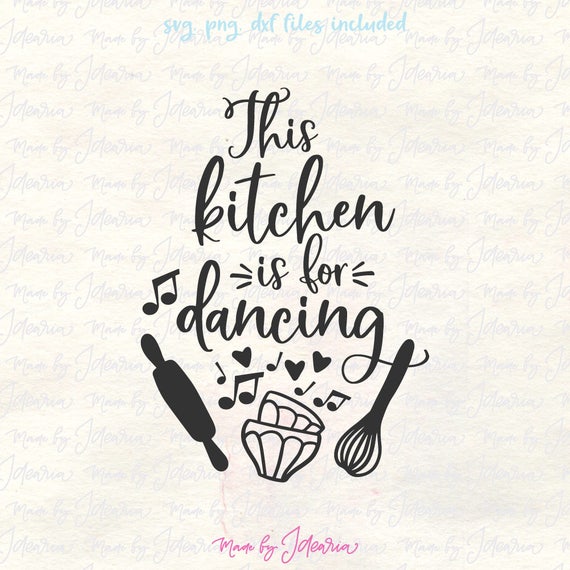 svg, png, dxf files included
This
kitchen
is for
dancing
Made by Idearia